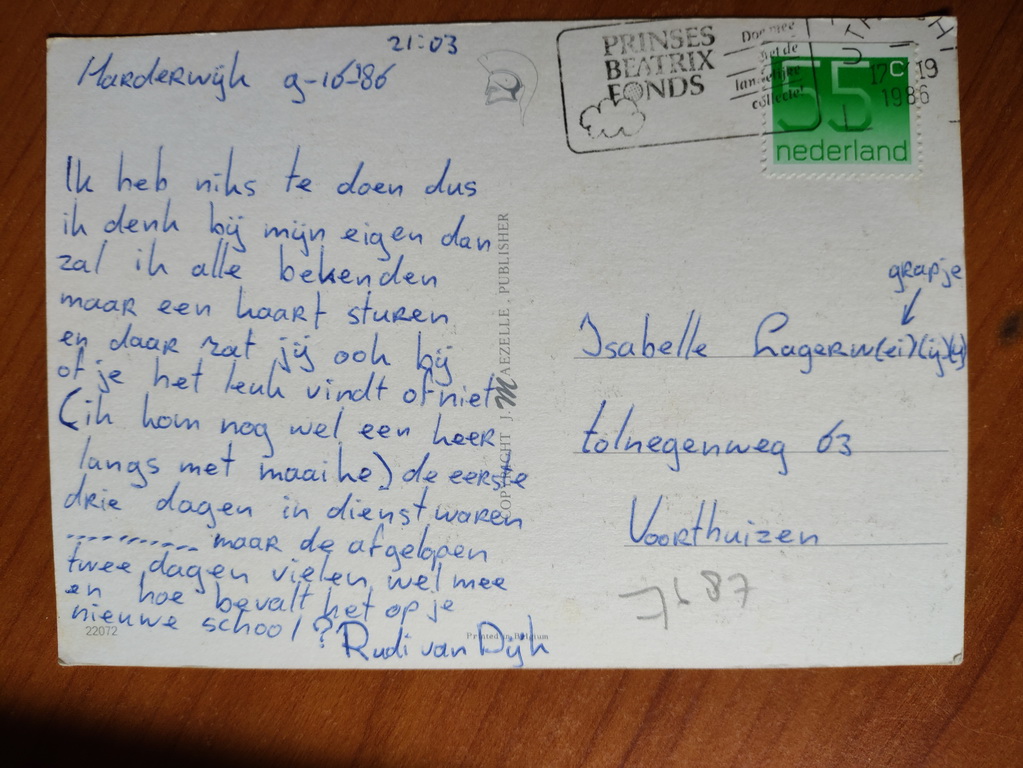 21:03
Harderwijk 9-16-'86
Ik heb niks te doen dus
ik denk bij mijn eigen dan
zal ik alle bekenden
maar een kaart sturen
en daar zat jij ook bij
of je het leuk vindt of niet
(ik kom nog wel een keer
langs met maaike) de eerste
drie dagen in dienst waren
............ maar de afgelopen
twee dagen vielen wel mee
en hoe bevalt het op je
nieuwe school?
Rudi van Dijk
22072
Printed in Belgium
COPYRIGHT J. MAEZELLE, PUBLISHER
PRINSES
BEATRIX
FONDS
Doe mee
met de
landelijke
collecte!
UTRECHT
17 19
1986
55c
nederland
grapje
Isabelle Lagerw(ei)(ij)(y)
tolnegenweg 63
Voorthuizen